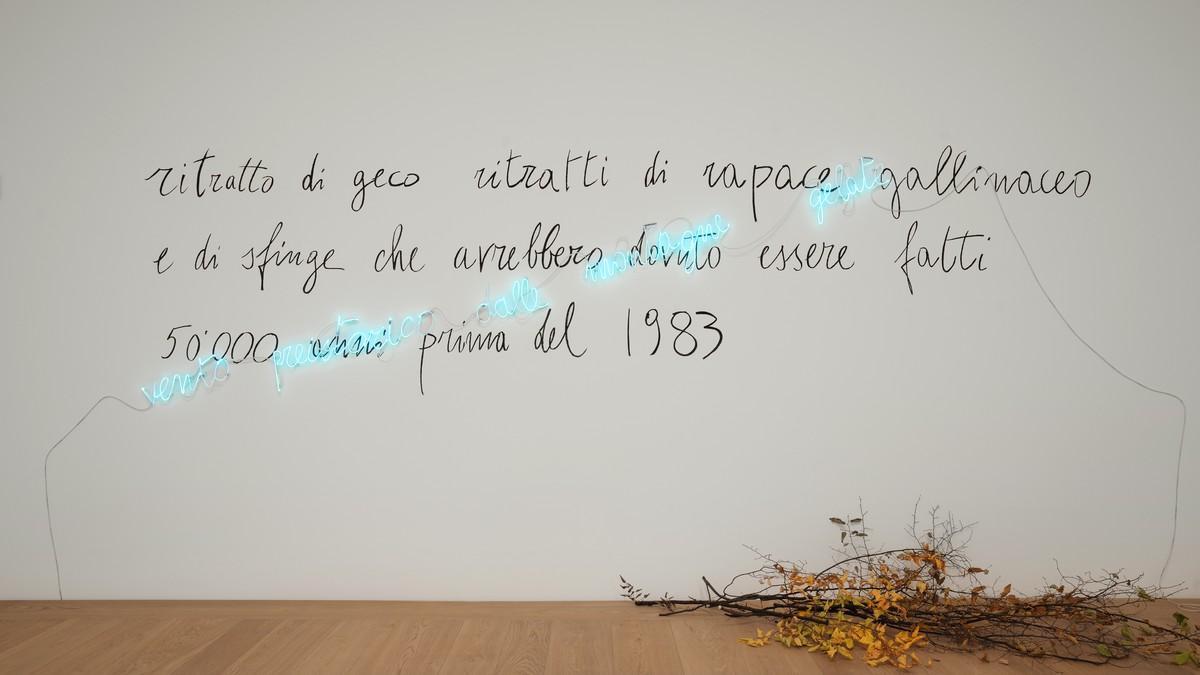 ritratto di geco ritratti di rapace gallinaceo
e di sfinge che avrebbero dovuto essere fatti
50'000 anni prima del 1983
vento preistorico dalle montagne gelate